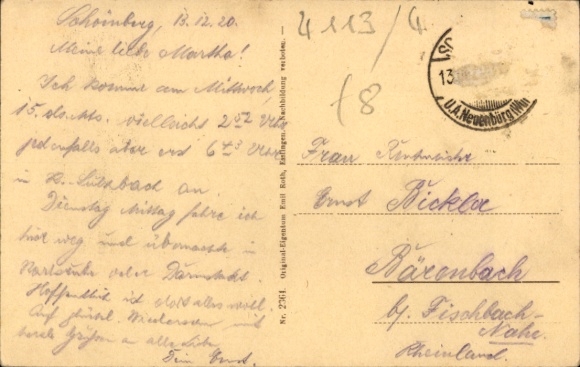 Schömberg, 13.12.20.
Meine liebe Martha!
Ich komme am Mittwoch,
15. ds. Mts. vielleicht 2 52 Uhr
jedenfalls aber erst 6 43 Uhr
in Sulzbach an
Dienstag Mittag fahre ich
hier weg und übernachte in
Karlsruhe oder Darmstadt.
Hoffentlich ist dort alles wohl.
Auf glückl. Wiedersehen mit
herzl. Grüßen an alle Liebe
Dein Ernst.
Nr. 2361. Original-Eigentum Emil Roth, Eßlingen. Nachbildung verboten.
4113/4
f8
13
O.A. Neuenbürg
Frau
Ernst Bickler
Bärenbach
b/ Fischbach-
Nahe.
Rheinland.